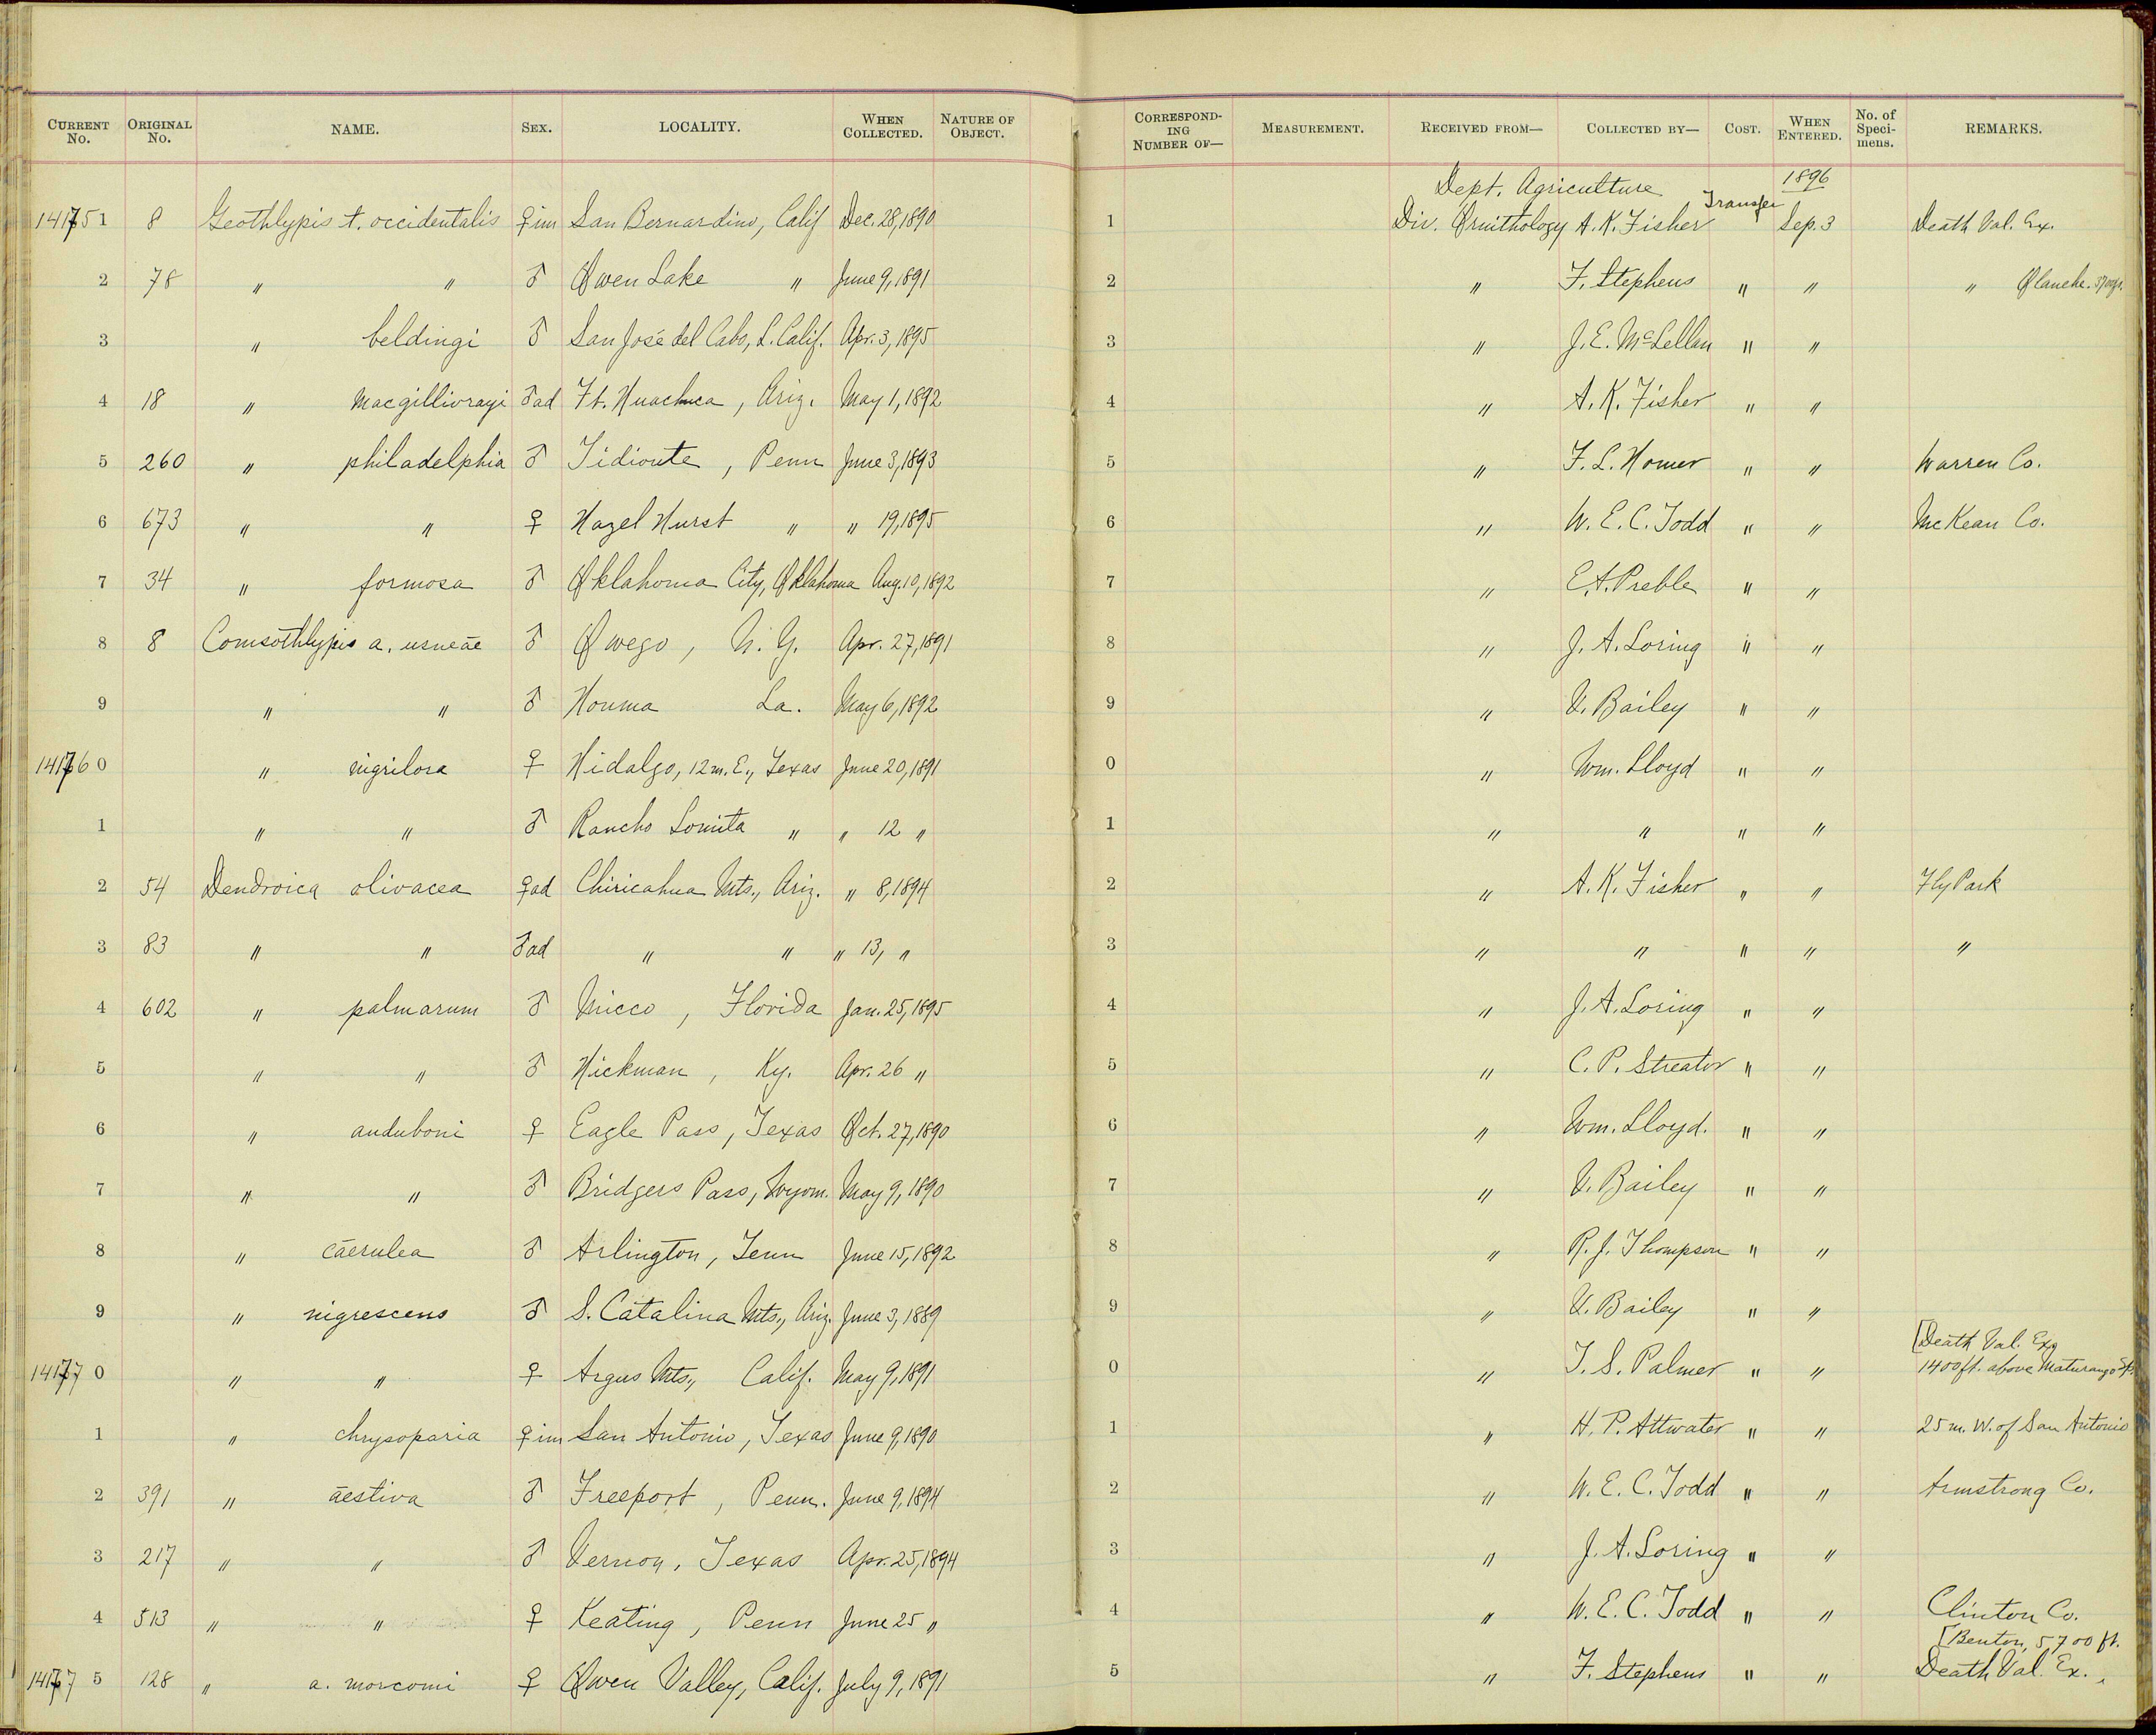 CURRENT No. ORIGINAL No. NAME. SEX. LOCALITY. WHEN COLLECTED. NATURE OF OBJECT. CORRESPONDING NUMBER OF— MEASUREMENT. RECEIVED FROM— COLLECTED BY— COST. WHEN ENTERED. No. of Specimens. REMARKS.
Dept. Agriculture 1896
141751 8 Geothlypis t. occidentalis ♀ im San Bernardino, Calif Dec. 28, 1890 1 Div. Ornithology A. K. Fisher Transfer Sep. 3 Death Val. Ex.
2 78 " " ♂ Owen Lake " June 9, 1891 2 " F. Stephens " " " Olanche.
3 " beldingi ♂ San José del Cabo, L. Calif. Apr. 3, 1895 3 " J. E. McLellan " "
4 18 " macgillivrayi ♂ ad Ft. Huachuca, Ariz. May 1, 1892 4 " A. K. Fisher " "
5 260 " philadelphia ♂ Tidioute, Penn June 3, 1893 5 " F. L. Homer " " Warren Co.
6 673 " " ♀ Hazel Hurst " " 19, 1895 6 " W. E. C. Todd " " McKean Co.
7 34 " formosa ♂ Oklahoma City, Oklahoma Aug. 10, 1892 7 " E. A. Preble " "
8 8 Comsothlypis a. usneae ♂ Owego, N. Y. Apr. 27, 1891 8 " J. A. Loring " "
9 " " ♂ Houma La. May 6, 1892 9 " V. Bailey " "
141760 " nigrilora ♀ Hidalgo, 12 m. E., Texas June 20, 1891 0 " Wm. Lloyd " "
1 " " ♂ Rancho Lomita " " 12 " 1 " " " "
2 54 Dendroica olivacea ♀ ad Chiricahua Mts., Ariz. " 8, 1894 2 " A. K. Fisher " " Fly Park
3 83 " " ♂ ad " " " 13, " 3 " " " " "
4 602 " palmarum ♂ Micco, Florida Jan. 25, 1895 4 " J. A. Loring " "
5 " " ♂ Hickman, Ky. Apr. 26 " 5 " C. P. Streator " "
6 " auduboni ♀ Eagle Pass, Texas Oct. 27, 1890 6 " Wm. Lloyd. " "
7 " " ♂ Bridgers Pass, Wyom. May 9, 1890 7 " V. Bailey " "
8 " caerulea ♂ Arlington, Tenn June 15, 1892 8 " R. J. Thompson " "
9 " nigrescens ♂ S. Catalina Mts., Ariz. June 3, 1889 9 " V. Bailey " "
[Death Val. Exp
141770 " " ♀ Argus Mts., Calif. May 9, 1891 0 " T. S. Palmer " " 1400 ft. above Maturango Sp.
1 " chrysoparia ♀ im San Antonio, Texas June 9, 1890 1 " H. P. Attwater " " 25 m. W. of San Antonio
2 391 " aestiva ♂ Freeport, Penn. June 9, 1894 2 " W. E. C. Todd " " Armstrong Co.
3 217 " " ♂ Vernon, Texas Apr. 25, 1894 3 " J. A. Loring " "
4 513 " " ♀ Keating, Penn June 25 " 4 " W. E. C. Todd " " Clinton Co.
[Benton, 5700 ft.
141775 128 " a. morcomi ♀ Owen Valley, Calif. July 9, 1891 5 " F. Stephens " " Death Val. Ex.